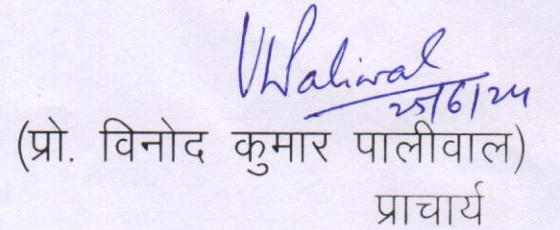 VKPaliwal
25/6/24
(प्रो. विनोद कुमार पालीवाल)
प्राचार्य